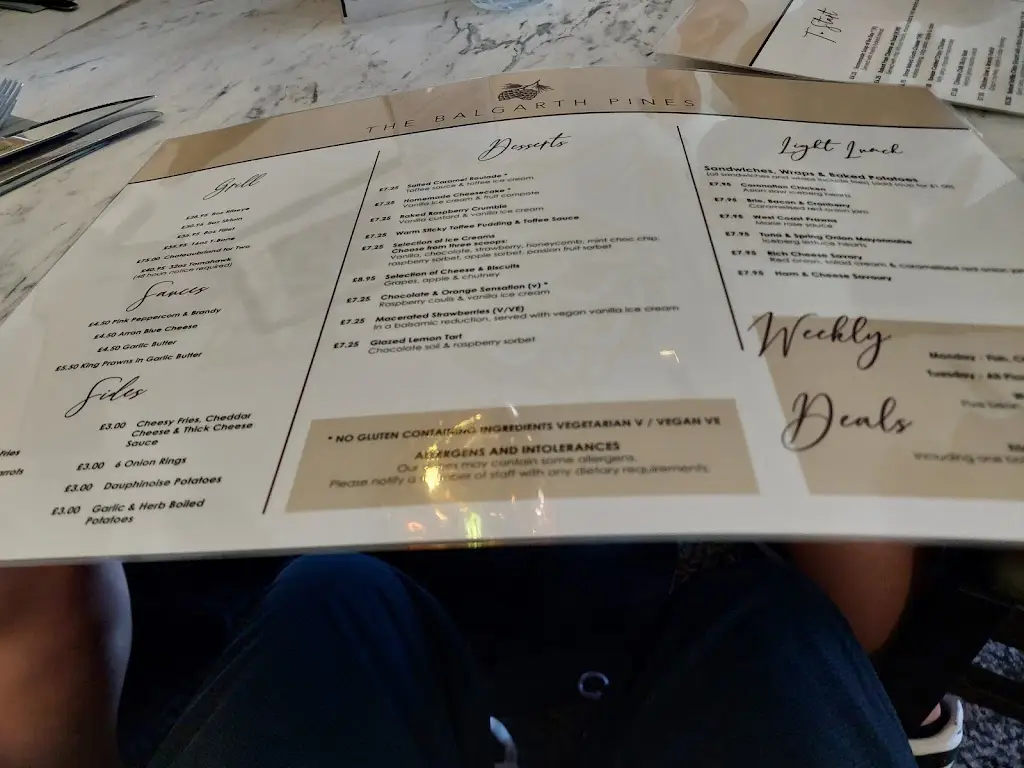 THE BALGARTH PINES
Grill
£28.95 8oz Ribeye
8oz Sirloin
8oz Fillet
16oz T Bone
£75.00 Chateaubriand for Two
32oz Tomahawk
(48 hours notice required)
Sauces
£4.50 Pink Peppercorn & Brandy
£4.50 Arran Blue Cheese
£4.50 Garlic Butter
£5.50 King Prawns in Garlic Butter
Sides
£3.00 Cheesy Fries, Cheddar
Cheese & Thick Cheese
Sauce
£3.00 6 Onion Rings
£3.00 Dauphinoise Potatoes
£3.00 Garlic & Herb Boiled
Potatoes
Desserts
£7.25 Salted Caramel Roulade *
Toffee sauce & toffee ice cream
£7.25 Homemade Cheesecake *
Vanilla ice cream & fruit compote
£7.25 Baked Raspberry Crumble
Vanilla Custard & vanilla ice cream
£7.25 Warm Sticky Toffee Pudding & Toffee Sauce
£7.25 Selection of Ice Creams
Choose from three scoops:
Vanilla, chocolate, strawberry, honeycomb, mint choc chip,
raspberry sorbet, apple sorbet, passion fruit sorbet
£8.95 Selection of Cheese & Biscuits
Grapes, apple & chutney
£7.25 Chocolate & Orange Sensation (v) *
Raspberry coulis & vanilla ice cream
£7.25 Macerated Strawberries (V/VE)
In a balsamic reduction, served with vegan vanilla ice cream
£7.25 Glazed Lemon Tart
Chocolate soil & raspberry sorbet
* NO GLUTEN CONTAINING INGREDIENTS VEGETARIAN V / VEGAN VE
ALLERGENS AND INTOLERANCES
Our dishes may contain some allergens.
Please notify a member of staff with any dietary requirements.
Light Lunch
Sandwiches, Wraps & Baked Potatoes
£7.95 Coronation Chicken
Asian slaw iceberg hearts
£7.95 Brie, Bacon & Cranberry
Caramelised red onion jam
£7.95 West Coast Prawns
Marie rose sauce
£7.95 Tuna & Spring Onion Mayonnaise
Iceberg lettuce hearts
£7.95 Rich Cheese Savory
Red onion, salad cream & caramelised red onion
£7.95 Ham & Cheese Savoury
Weekly
Deals
Monday -
Tuesday -
Including one
To Start